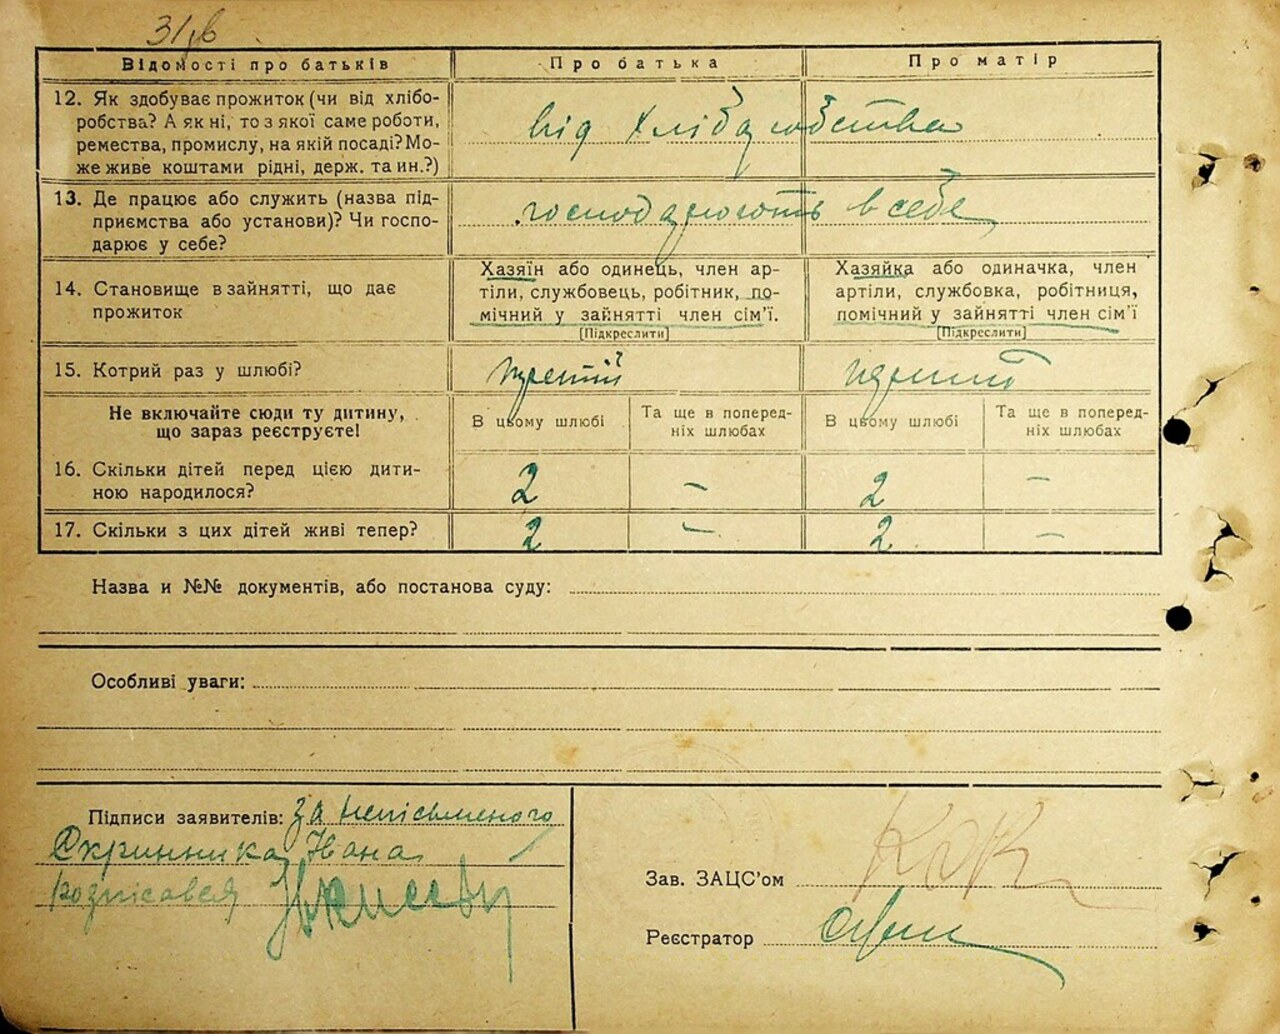 31зв
Відомості про батьків
Про батька
Про матір
12. Як здобуває прожиток (чи від хлібо-
робства? А як ні, то з якої саме роботи,
ремества, промислу, на якій посаді? Мо-
же живе коштами рідні, держ. та ин.?)
від хліборобства
13. Де працює або служить (назва під-
приємства або установи)? Чи госпо-
дарює у себе?
господарюють в себе
14. Становище в зайнятті, що дає
прожиток
Хазяїн або одинець, член ар-
тіли, службовець, робітник, по-
мічний у зайнятті член сім'ї.
[Підкреслити]
Хазяйка або одиначка, член
артіли, службовка, робітниця,
помічний у зайнятті член сім'ї
[Підкреслити]
15. Котрий раз у шлюбі?
Не включайте сюди ту дитину,
що зараз реєструєте!
В цьому шлюбі
Та ще в поперед-
ніх шлюбах
В цьому шлюбі
Та ще в поперед-
ніх шлюбах
16. Скільки дітей перед цією дити-
ною народилося?
2 – 2 –
17. Скільки з цих дітей живі тепер?
2 – 2 –
Назва и №№ документів, або постанова суду:
Особливі уваги:
Підписи заявителів: за неписьменого
Скринника Івана
Зав. ЗАЦС'ом
Реєстратор